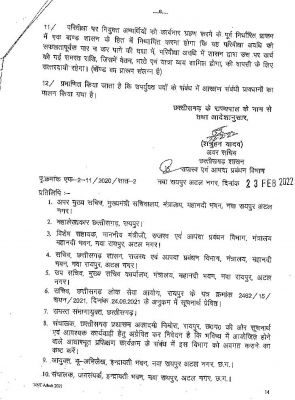 11/ परिवीक्षा पर नियुक्त अभ्यर्थियों को कार्यभार ग्रहण करने के पूर्व निर्धारित प्रारूप
में एक बाण्ड शासन के हित में निष्पादित करना होगा कि वह परिवीक्षा अवधि को
सफलतापूर्वक पार न कर पाने की दशा में, परिवीक्षा अवधि में शासन द्वारा उस पर खर्च
की गई समस्त राशि, जिसमें वेतन, भत्ते एवं यात्रा व्यय शामिल होगा, की वापसी के लिए
उत्तरदायी रहेगा। (बॉण्ड का प्रारूप संलग्न है)
12/ प्रमाणित किया जाता है कि उपर्युक्त पदों के संबंध में आरक्षण संबंधी प्रावधानों का
पालन किया गया है।
छत्तीसगढ़ के राज्यपाल के नाम से
तथा आदेशानुसार,
अवर सचिव
छत्तीसगढ़ शासन
राजस्व एवं आपदा प्रबंधन विभाग
पृ.क्रमांक एफ-2-11/2020/सात-2 नवा रायपुर अटल नगर, दिनांक 23 FEB 2022
प्रतिलिपि :-
1. अपर मुख्य सचिव, मुख्यमंत्री सचिवालय, मंत्रालय, महानदी भवन, नवा रायपुर अटल
नगर।
2. महालेखाकार छत्तीसगढ़, रायपुर।
3. विशेष सहायक, माननीय मंत्रीजी, राजस्व एवं आपदा प्रबंधन विभाग, मंत्रालय
महानदी भवन, नवा रायपुर, अटल नगर।
4. सचिव, छत्तीसगढ़ शासन, राजस्व एवं आपदा प्रबंधन विभाग, मंत्रालय, महानदी
भवन, नवा रायपुर, अटल नगर।
5. उप सचिव, मुख्य सचिव कार्यालय, मंत्रालय, महानदी भवन, नवा रायपुर, अटल
नगर।
6. सचिव, छत्तीसगढ़ लोक सेवा आयोग, रायपुर के पत्र क्रमांक 2462/15/
चयन/2021, दिनांक 24.09.2021 के अनुक्रम में सूचनार्थ प्रेषित।
7. समस्त संभागायुक्त, छत्तीसगढ़।
8. संचालक, छत्तीसगढ़ प्रशासन अकादमी निमोरा, रायपुर, छ०ग० की ओर सूचनार्थ
एवं आवश्यक कार्यवाही हेतु अग्रेषित कर निवेदन है कि भविष्य में आयोजित होने
वाले आधारभूत प्रशिक्षण कार्यक्रम के संबंध में इस विभाग को अवगत कराने का
कष्ट करें।
9. आयुक्त, भू-अभिलेख, इन्द्रावती भवन, नवा रायपुर अटल नगर, छ.ग.।
10. संचालक, जनसंपर्क, इन्द्रावती भवन, नवा रायपुर, अटल नगर, छ.ग.।
14